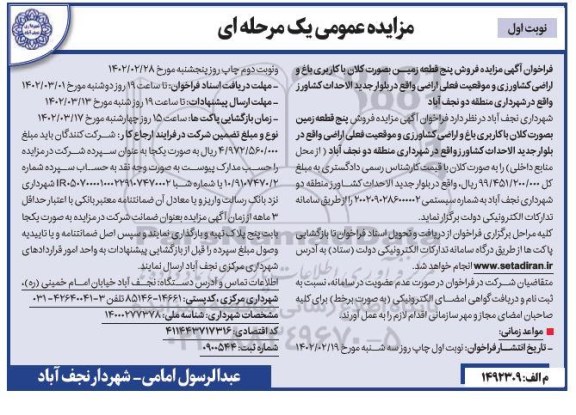 نوبت اول
مزایده عمومی یک مرحله ای
شهرداری نجف آباد
فراخوان آگهی مزایده فروش پنج قطعه زمین بصورت کلان با کاربری باغ و
اراضی کشاورزی و موقعیت فعلی اراضی واقع در بلوار جدید الاحداث کشاورز
واقع در شهرداری منطقه دو نجف آباد
شهرداری نجف آباد در نظر دارد فراخوان آگهی مزایده فروش پنج قطعه زمین
بصورت کلان با کاربری باغ و اراضی کشاورزی و موقعیت فعلی اراضی واقع در
بلوار جدید الاحداث کشاورز واقع در شهرداری منطقه دو نجف آباد ( از محل
منابع داخلی) را به صورت کلان با قیمت کارشناس رسمی دادگستری به مبلغ
کل ۹۹/۴۵۱/۲۰۰/۰۰۰ ریال، واقع در بلوار جدید الاحداث کشاورز منطقه دو
شهرداری نجف آباد به شماره سیستمی ۲۰۰۲۰۹۰۲۸۶۰۰۰۰۰۲ را از طریق سامانه
تدارکات الکترونیکی دولت برگزار نماید.
کلیه مراحل برگزاری فراخوان از دریافت و تحویل اسناد فراخوان تا بازگشایی
پاکت ها از طریق درگاه سامانه تدارکات الکترونیکی دولت (ستاد) به آدرس
www.setadiran.ir انجام خواهد شد.
متقاضیان شرکت در فراخوان در صورت عدم عضویت در سامانه، نسبت به
ثبت نام و دریافت گواهی امضای الکترونیکی (به صورت برخط) برای کلیه
صاحبان امضای مجاز و مهر سازمانی اقدام لازم را به عمل آورند.
مواعد زمانی:
- تاریخ انتشار فراخوان: نوبت اول چاپ روز سه شنبه مورخ ۱۴۰۲/۰۲/۱۹
ونوبت دوم چاپ روز پنجشنبه مورخ ۱۴۰۲/۰۲/۲۸
- مهلت دریافت اسناد فراخوان: تا ساعت ۱۹ روز دوشنبه مورخ ۱۴۰۲/۰۳/۰۱
- مهلت ارسال پیشنهادات: تا ساعت ۱۹ روز شنبه مورخ ۱۴۰۲/۰۳/۱۳
- زمان بازگشایی پاکت ها: ساعت ۱۵ روز چهارشنبه مورخ ۱۴۰۲/۰۳/۱۷
نوع و مبلغ تضمین شرکت در فرایند ارجاع کار: شرکت کنندگان باید مبلغ
۴/۹۷۲/۵۶۰/۰۰۰ ریال به صورت یکجا به عنوان سپرده شرکت در مزایده
را حسب مدارک پیوست به صورت وجه نقد به حساب سپرده شماره
۱۰/۹۱۰۷۴۷۰/۲ یا شماره شبا شهرداری
نزد بانک رسالت واریز و یا معادل آن ضمانتنامه معتبر بانکی با اعتبار حداقل
۳ ماهه از زمان آگهی مزایده بعنوان ضمانت شرکت در مزایده به صورت یکجا
بابت پنج پلاک تهیه و بارگذاری نمایند و سپس اصل ضمانتنامه و یا تاییدیه
وصول مبلغ سپرده را قبل از بازگشایی پیشنهادات به واحد امور قراردادهای
شهرداری مرکزی نجف آباد ارسال نمایند.
اطلاعات تماس و آدرس دستگاه: نجف آباد خیابان امام خمینی (ره)،
شهرداری مرکزی، کدپستی: ۱۴۶۶۱-۸۵۱۴۶ تلفن ۳-۴۲۶۴۰۰۴۱-۰۳۱
مشخصات شهرداری: شناسه ملی: ۱۴۰۰۰۲۷۷۳۷۸
کد اقتصادی: ۴۱۱۴۴۳۷۱۷۳۱۶
شماره ثبت: ۰۹۰۰۵۴۴
م الف: ۱۴۹۲۳۰۹
عبدالرسول امامی- شهردار نجف آباد